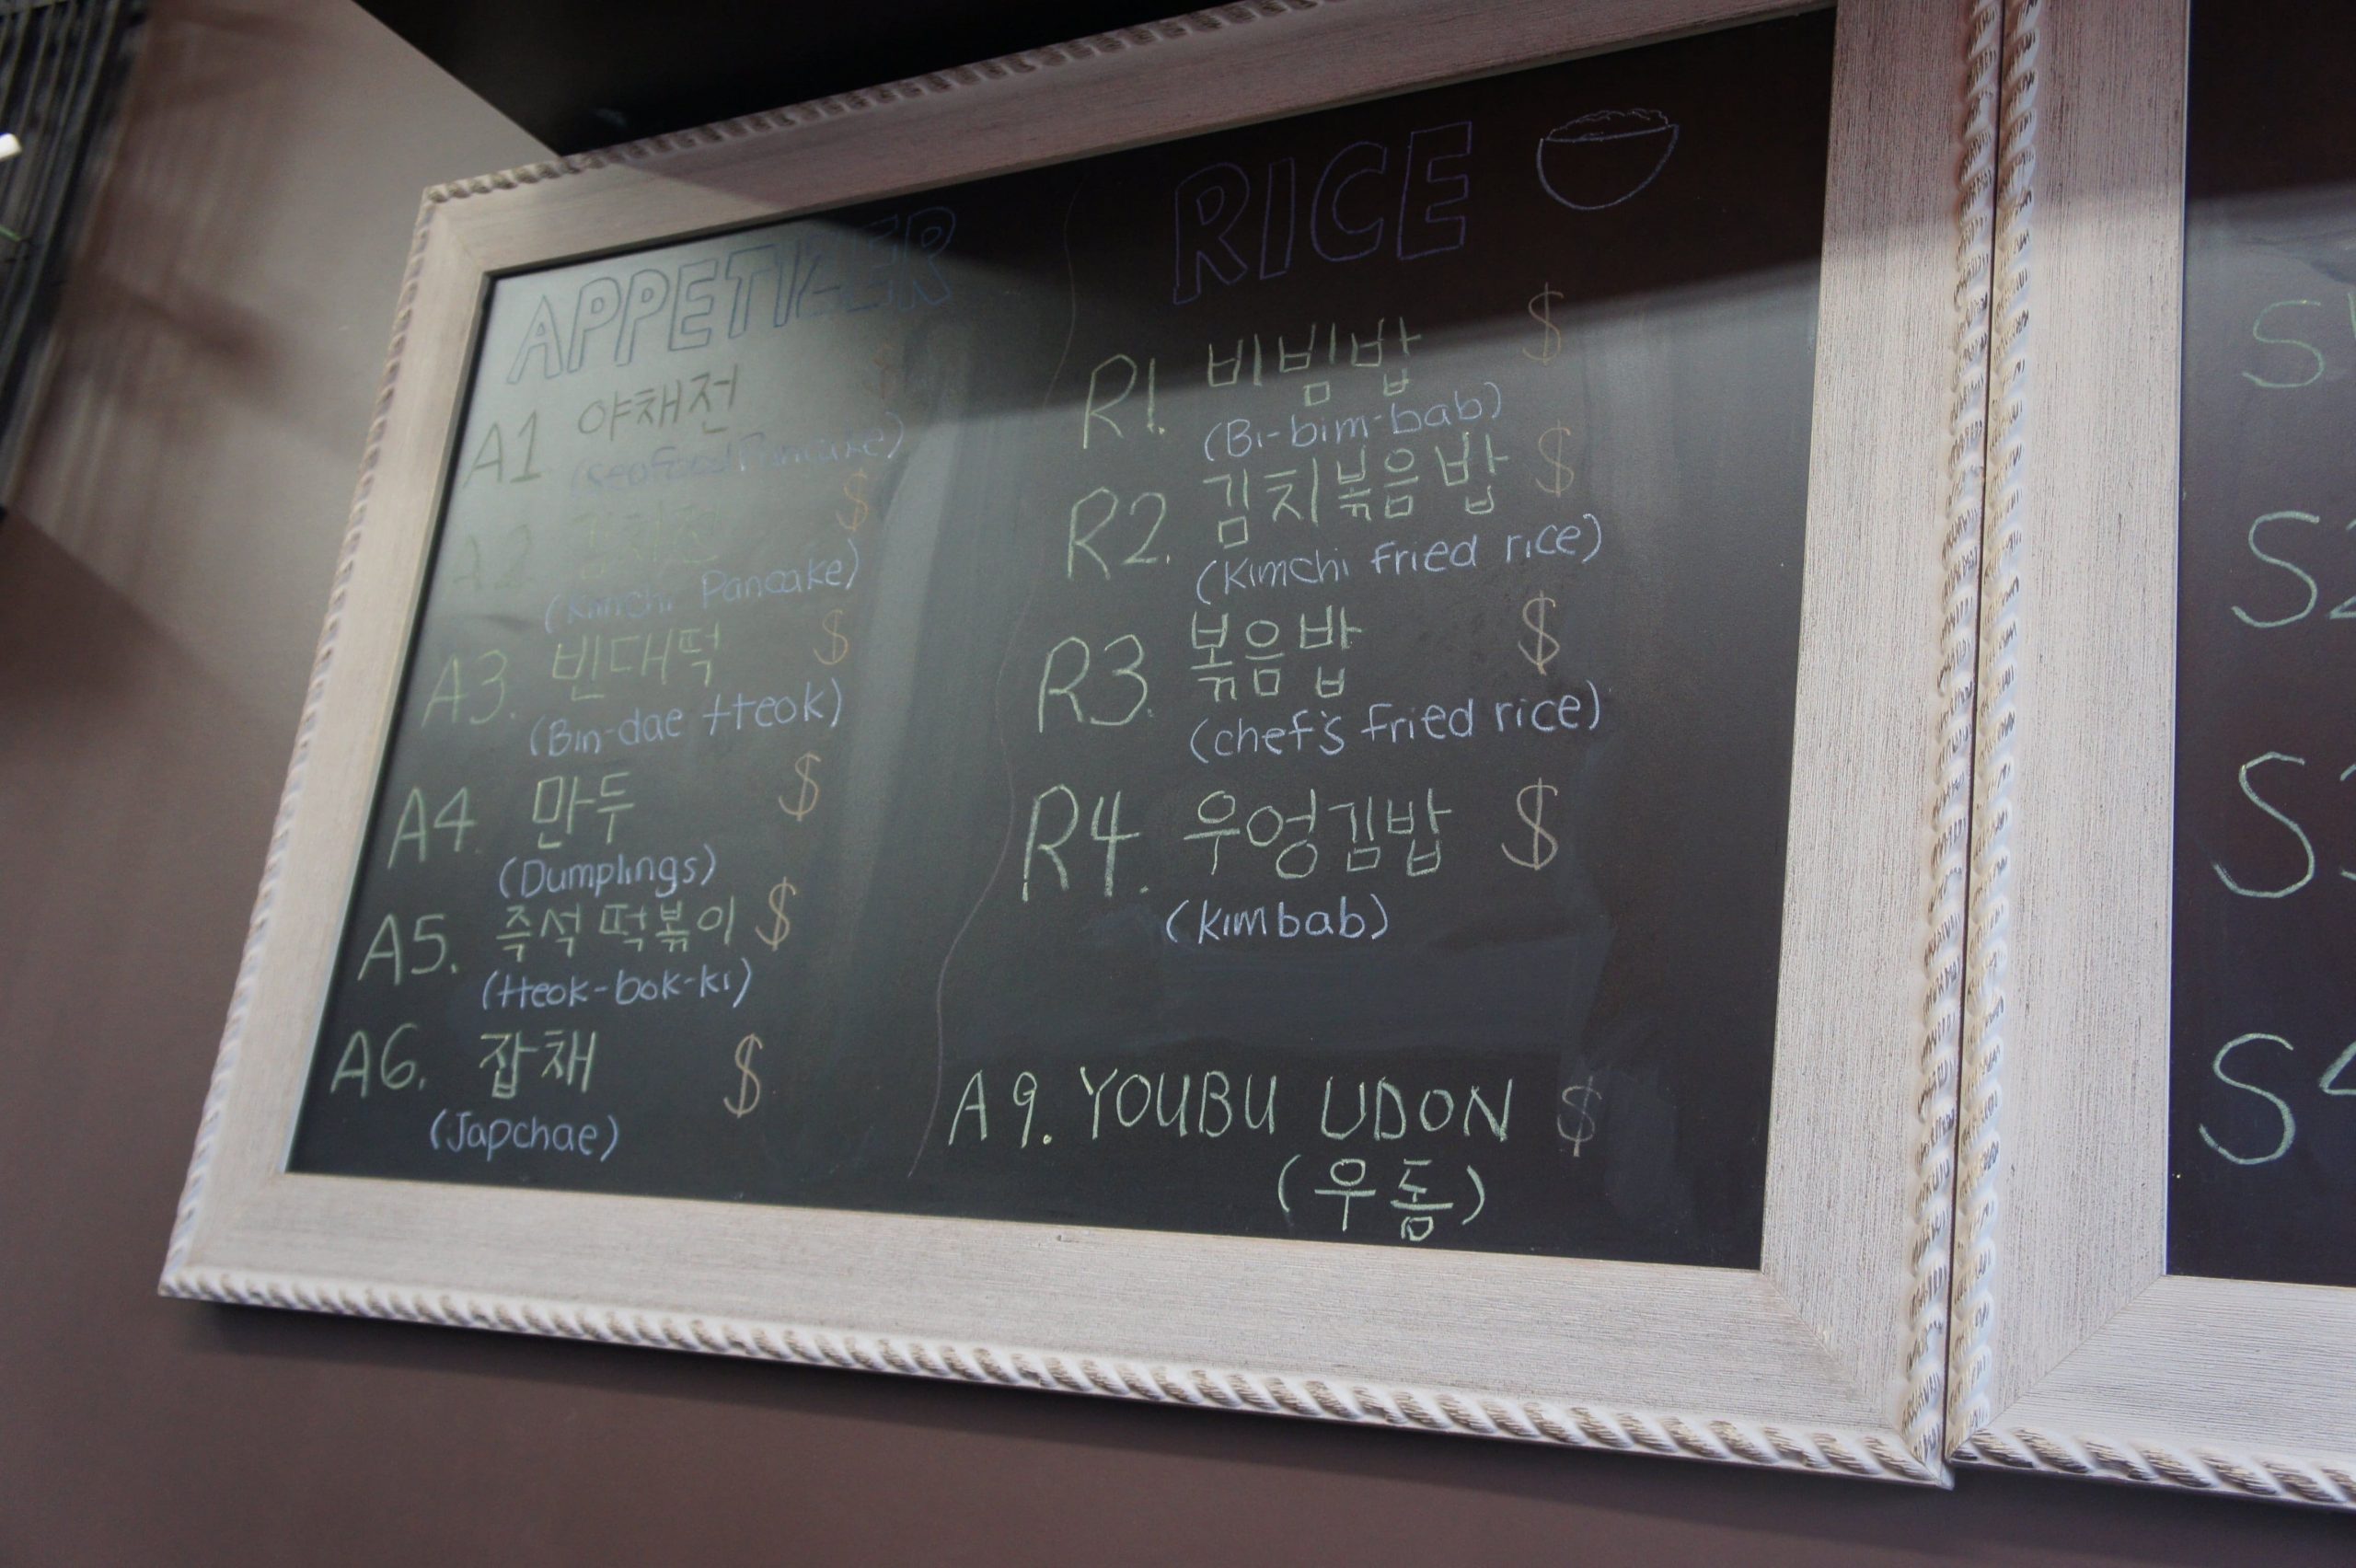 APPETIZER
A1 야채전 $
(Seafood Pancake)
A2 김치전 $
(Kimchi Pancake)
A3. 빈대떡 $
(Bin-dae tteok)
A4. 만두 $
(Dumplings)
A5. 즉석 떡볶이 $
(tteok-bok-ki)
A6. 잡채 $
(Japchae)
RICE
R1. 비빔밥 $
(Bi-bim-bab)
R2. 김치볶음밥 $
(Kimchi fried rice)
R3. 볶음밥 $
(chef's fried rice)
R4. 우엉김밥 $
(kimbab)
A9. YOUBU UDON $
(우돔)
S
S2
S3
S4